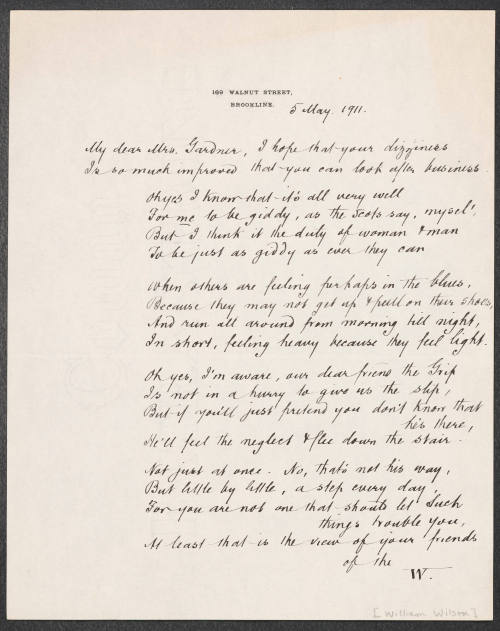 169 WALNUT STREET,
BROOKLINE.
5 May. 1911.
My dear Mrs. Gardner, I hope that your dizziness
Is so much improved that you can look after business.
Oh yes I know that it's all very well
For me to be giddy, as the Scots say, mysel',
But I think it the duty of woman & man
To be just as giddy as ever they can
When others are feeling perhaps in the blues,
Because they may not get up & pull on their shoes,
And run all around from morning till night,
In short, feeling heavy because they feel light.
Oh yes, I'm aware, our dear friend the Grip
Is not in a hurry to give us the slip,
But if you'll just pretend you don't know that
he's there,
He'll feel the neglect & flee down the stair.
Not just at once. No, that's not his way,
But little by little, a step every day;
For you are not one that should let such
things trouble you,
At least that is the view of your friends
of the
W.
[William Wilson]